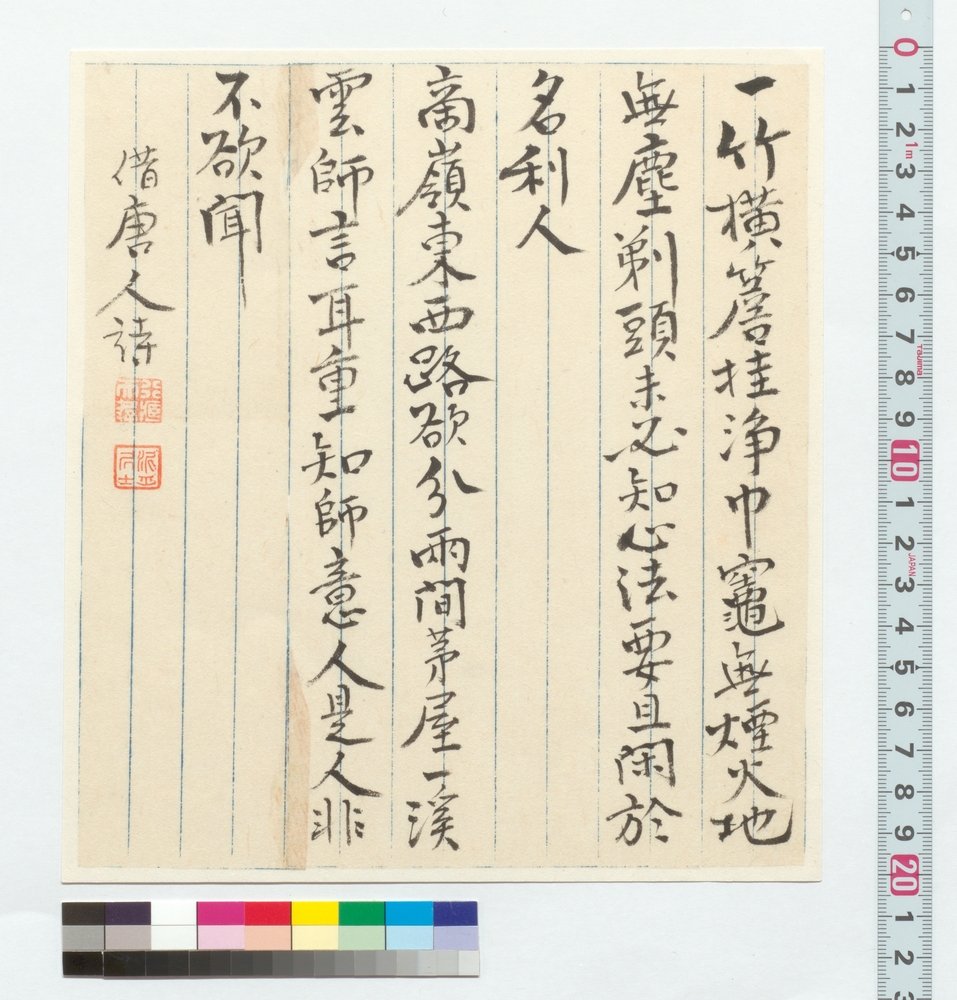 一竹橫簷挂淨巾竈無煙火地
無塵剃頭未必知心法要且閑於
名利人
高嶺東西路欲分兩間茅屋一溪
雲師言耳重知師意人是人非
不欲聞
借唐人詩
0
1
2
1m
3
4
5
6
7
Tajima
8
9
10
1
2
JAPAN
3
4
5
6
7
8
9
20
1
2
3